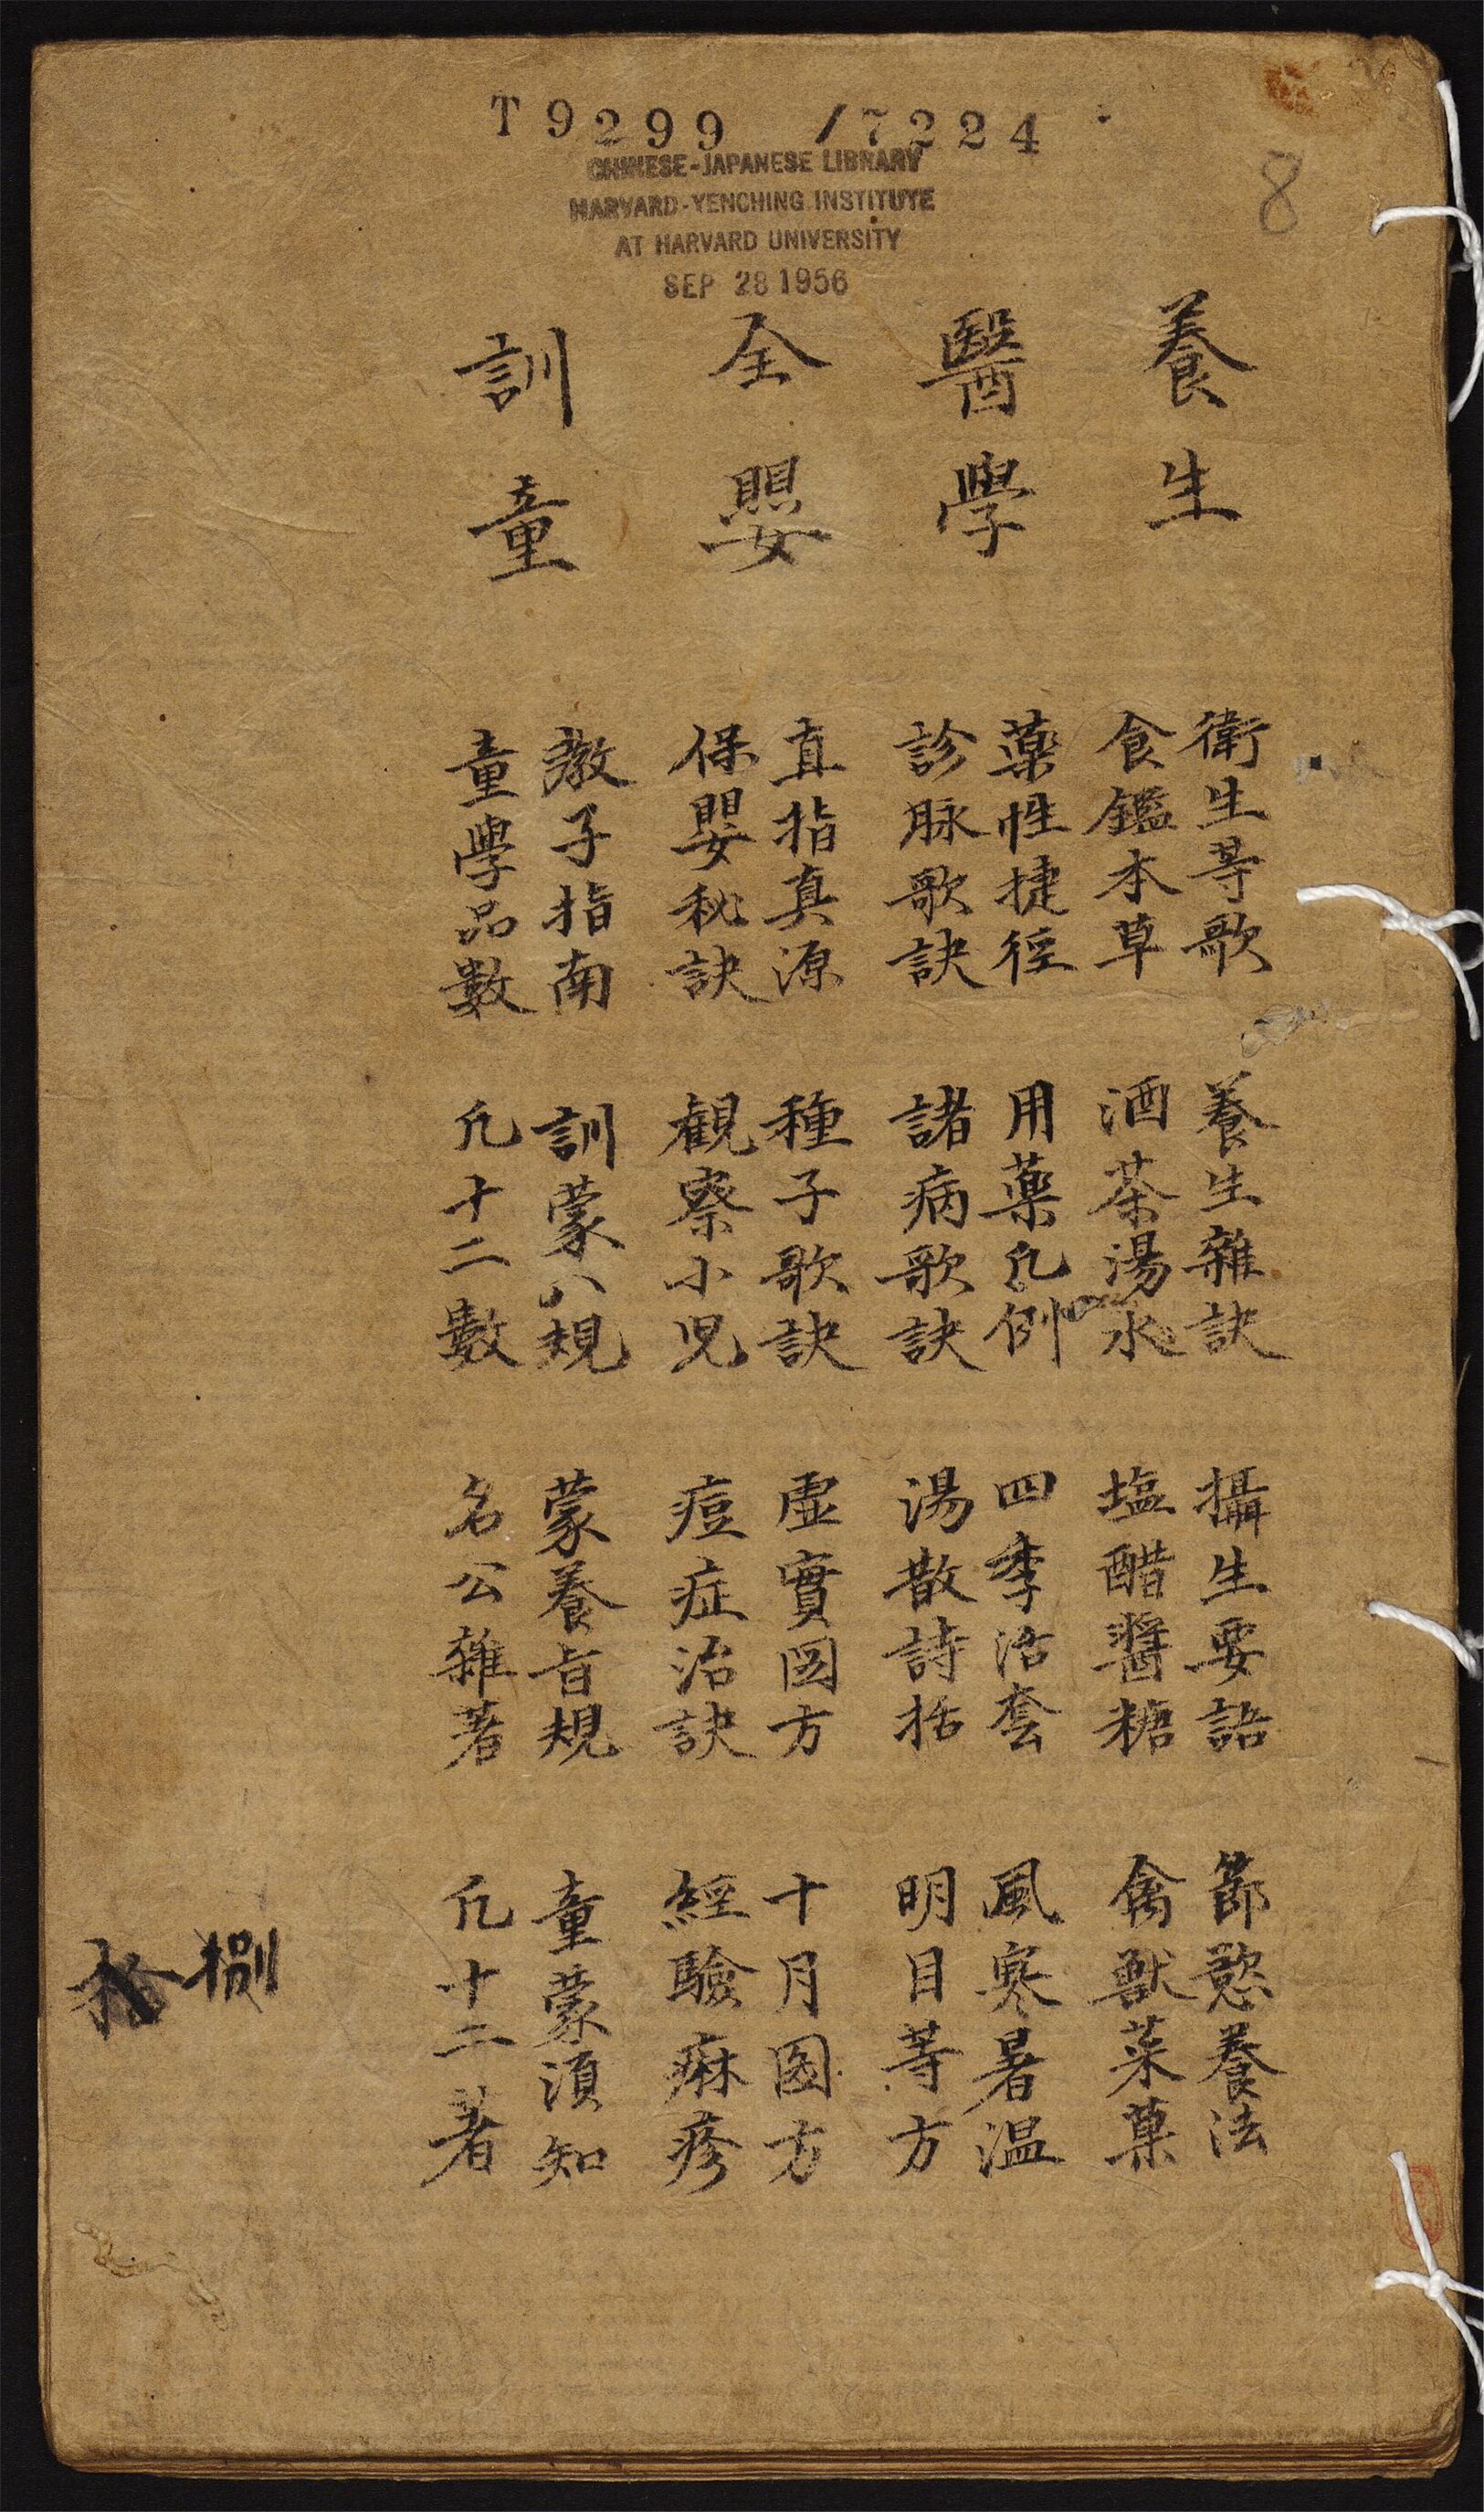 T9299 /7224
CHINESE-JAPANESE LIBRARY
HARVARD-YENCHING INSTITUTE
AT HARVARD UNIVERSITY
SEP 28 1956
8
養生
衛生等歌 養生雜訣 攝生要語 節慾養法
食鑑本草 酒茶湯水 塩醋醬糖 禽獸菜菓
醫學
藥性捷徑 用藥凢例 四季治套 風寒暑温
診脉歌訣 諸病歌訣 湯散詩括 明目等方
全嬰
直指真源 種子歌訣 虛實図方 十月図方
保嬰秘訣 観察小児 痘症治訣 經驗痳疹
訓童
教子指南 訓蒙八規 蒙養旨規 童蒙須知
童學品數 凢十二數 名公雜著 凢十二著
捌
拾